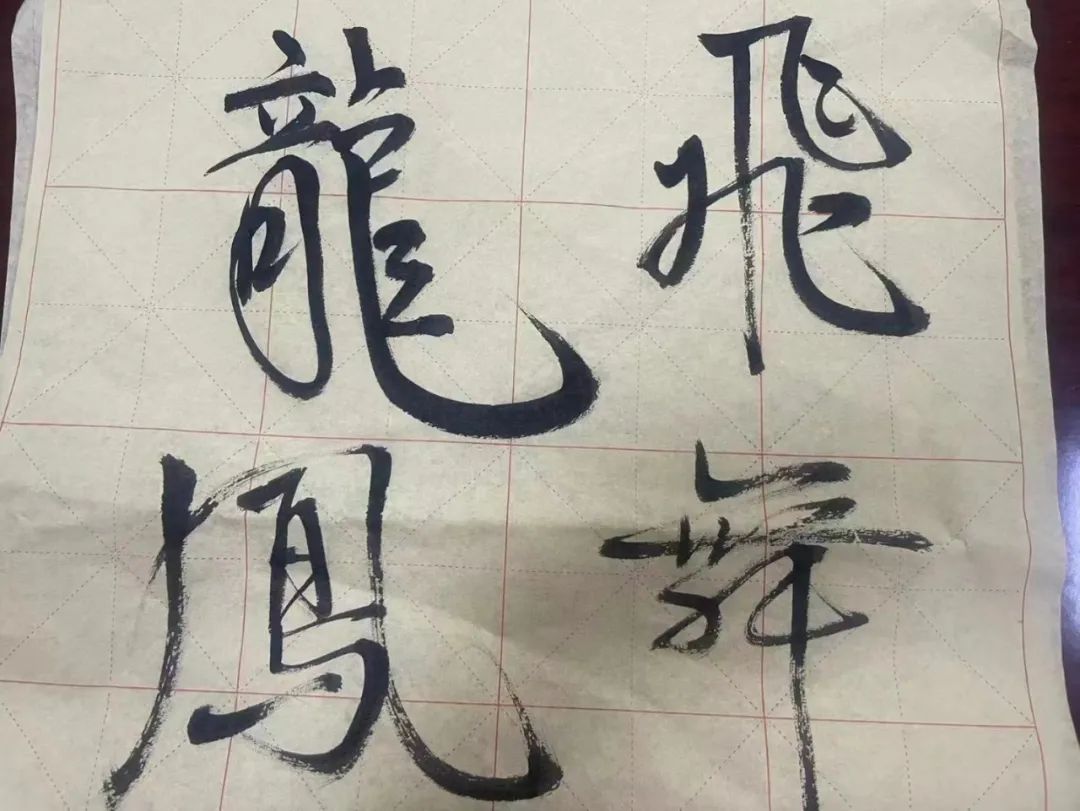 飛舞
龍鳳